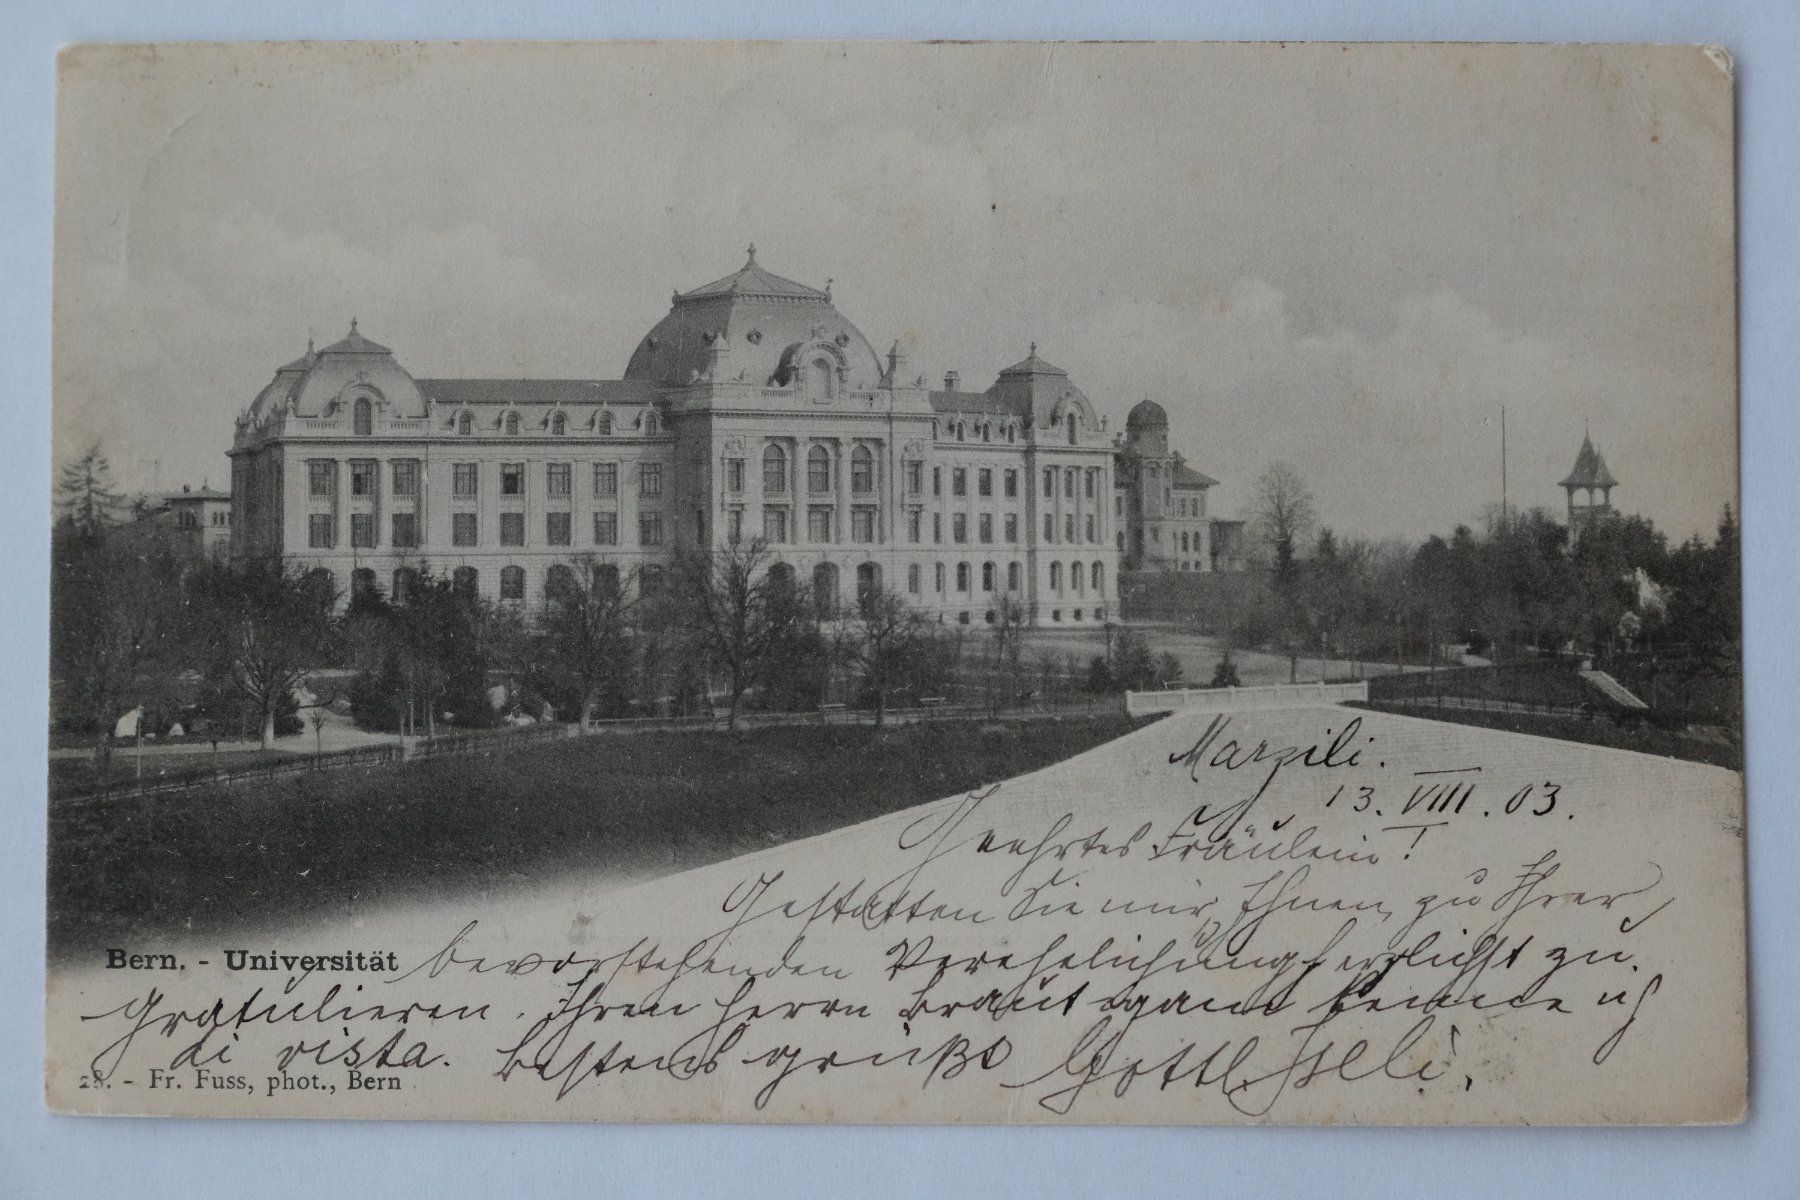 Marzili.
13. VIII. 03.
Geehrtes Fräulein!
Gestatten Sie mir, Ihnen, zu Ihrer
bevorstehenden Verehelichung herzlichst zu
gratulieren. Ihren Herrn Bräutigam kenne ich
di vista. Bestens grüßt Gottl.
Bern. - Universität
28. - Fr. Fuss, phot., Bern